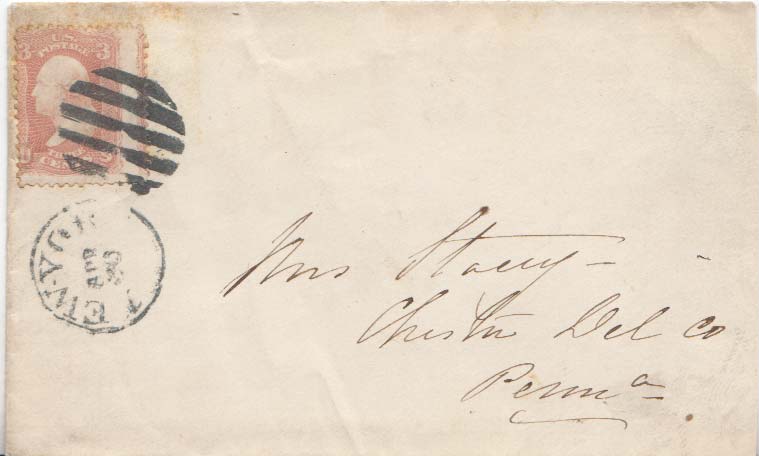 U.S. POSTAGE
3 3
THREE CENTS
NEW-YORK
APR
Mrs Stacey -
Chester Del Co
Penna